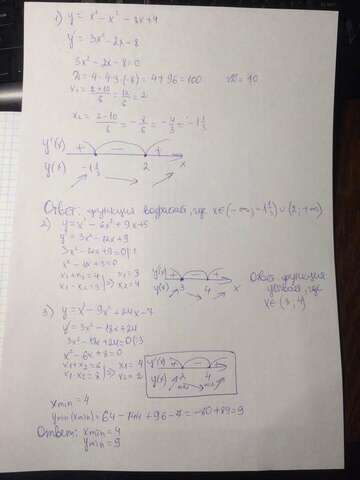 1) y = x³ - x² - 8x + 4
y' = 3x² - 2x - 8
3x² - 2x - 8 = 0
D = 4 - 4·3·(-8) = 4 + 96 = 100 √D = 10
x₁ = (2+10)/6 = 12/6 = 2
x₂ = (2-10)/6 = -8/6 = -4/3 = -1 1/3
y'(x) + - +
y(x) -1 1/3 2 x
Ответ: функция возрастает, где x∈(-∞; -1 1/3) ∪ (2; +∞)
2) y = x³ - 6x² + 9x + 5
y' = 3x² - 12x + 9
3x² - 12x + 9 = 0 |:3
x² - 4x + 3 = 0
x₁ + x₂ = 4 x₁ = 3
x₁ · x₂ = 3 => x₂ = 4
y'(x) + - +
y(x) 3 4 x
Ответ: функция
убывает, где
x∈(3; 4)
3) y = x³ - 9x² + 24x - 7
y' = 3x² - 18x + 24
3x² - 18x + 24 = 0 |:3
x² - 6x + 8 = 0
x₁ + x₂ = 6 x₁ = 4
x₁ · x₂ = 8 => x₂ = 2
y'(x) + - +
y(x) 2 4 x
max min
x min = 4
y min (x min) = 64 - 144 + 96 - 7 = -80 + 89 = 9
Ответ: x min = 4
y min = 9